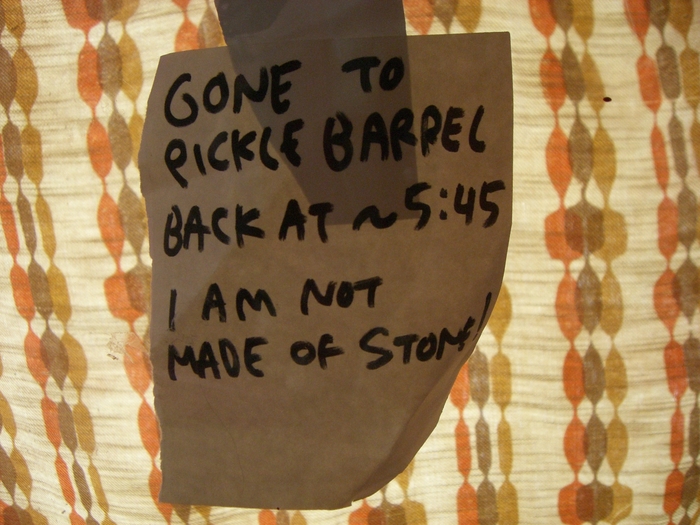 GONE TO
PICKLE BARREL
BACK AT ~5:45
I AM NOT
MADE OF STONE!